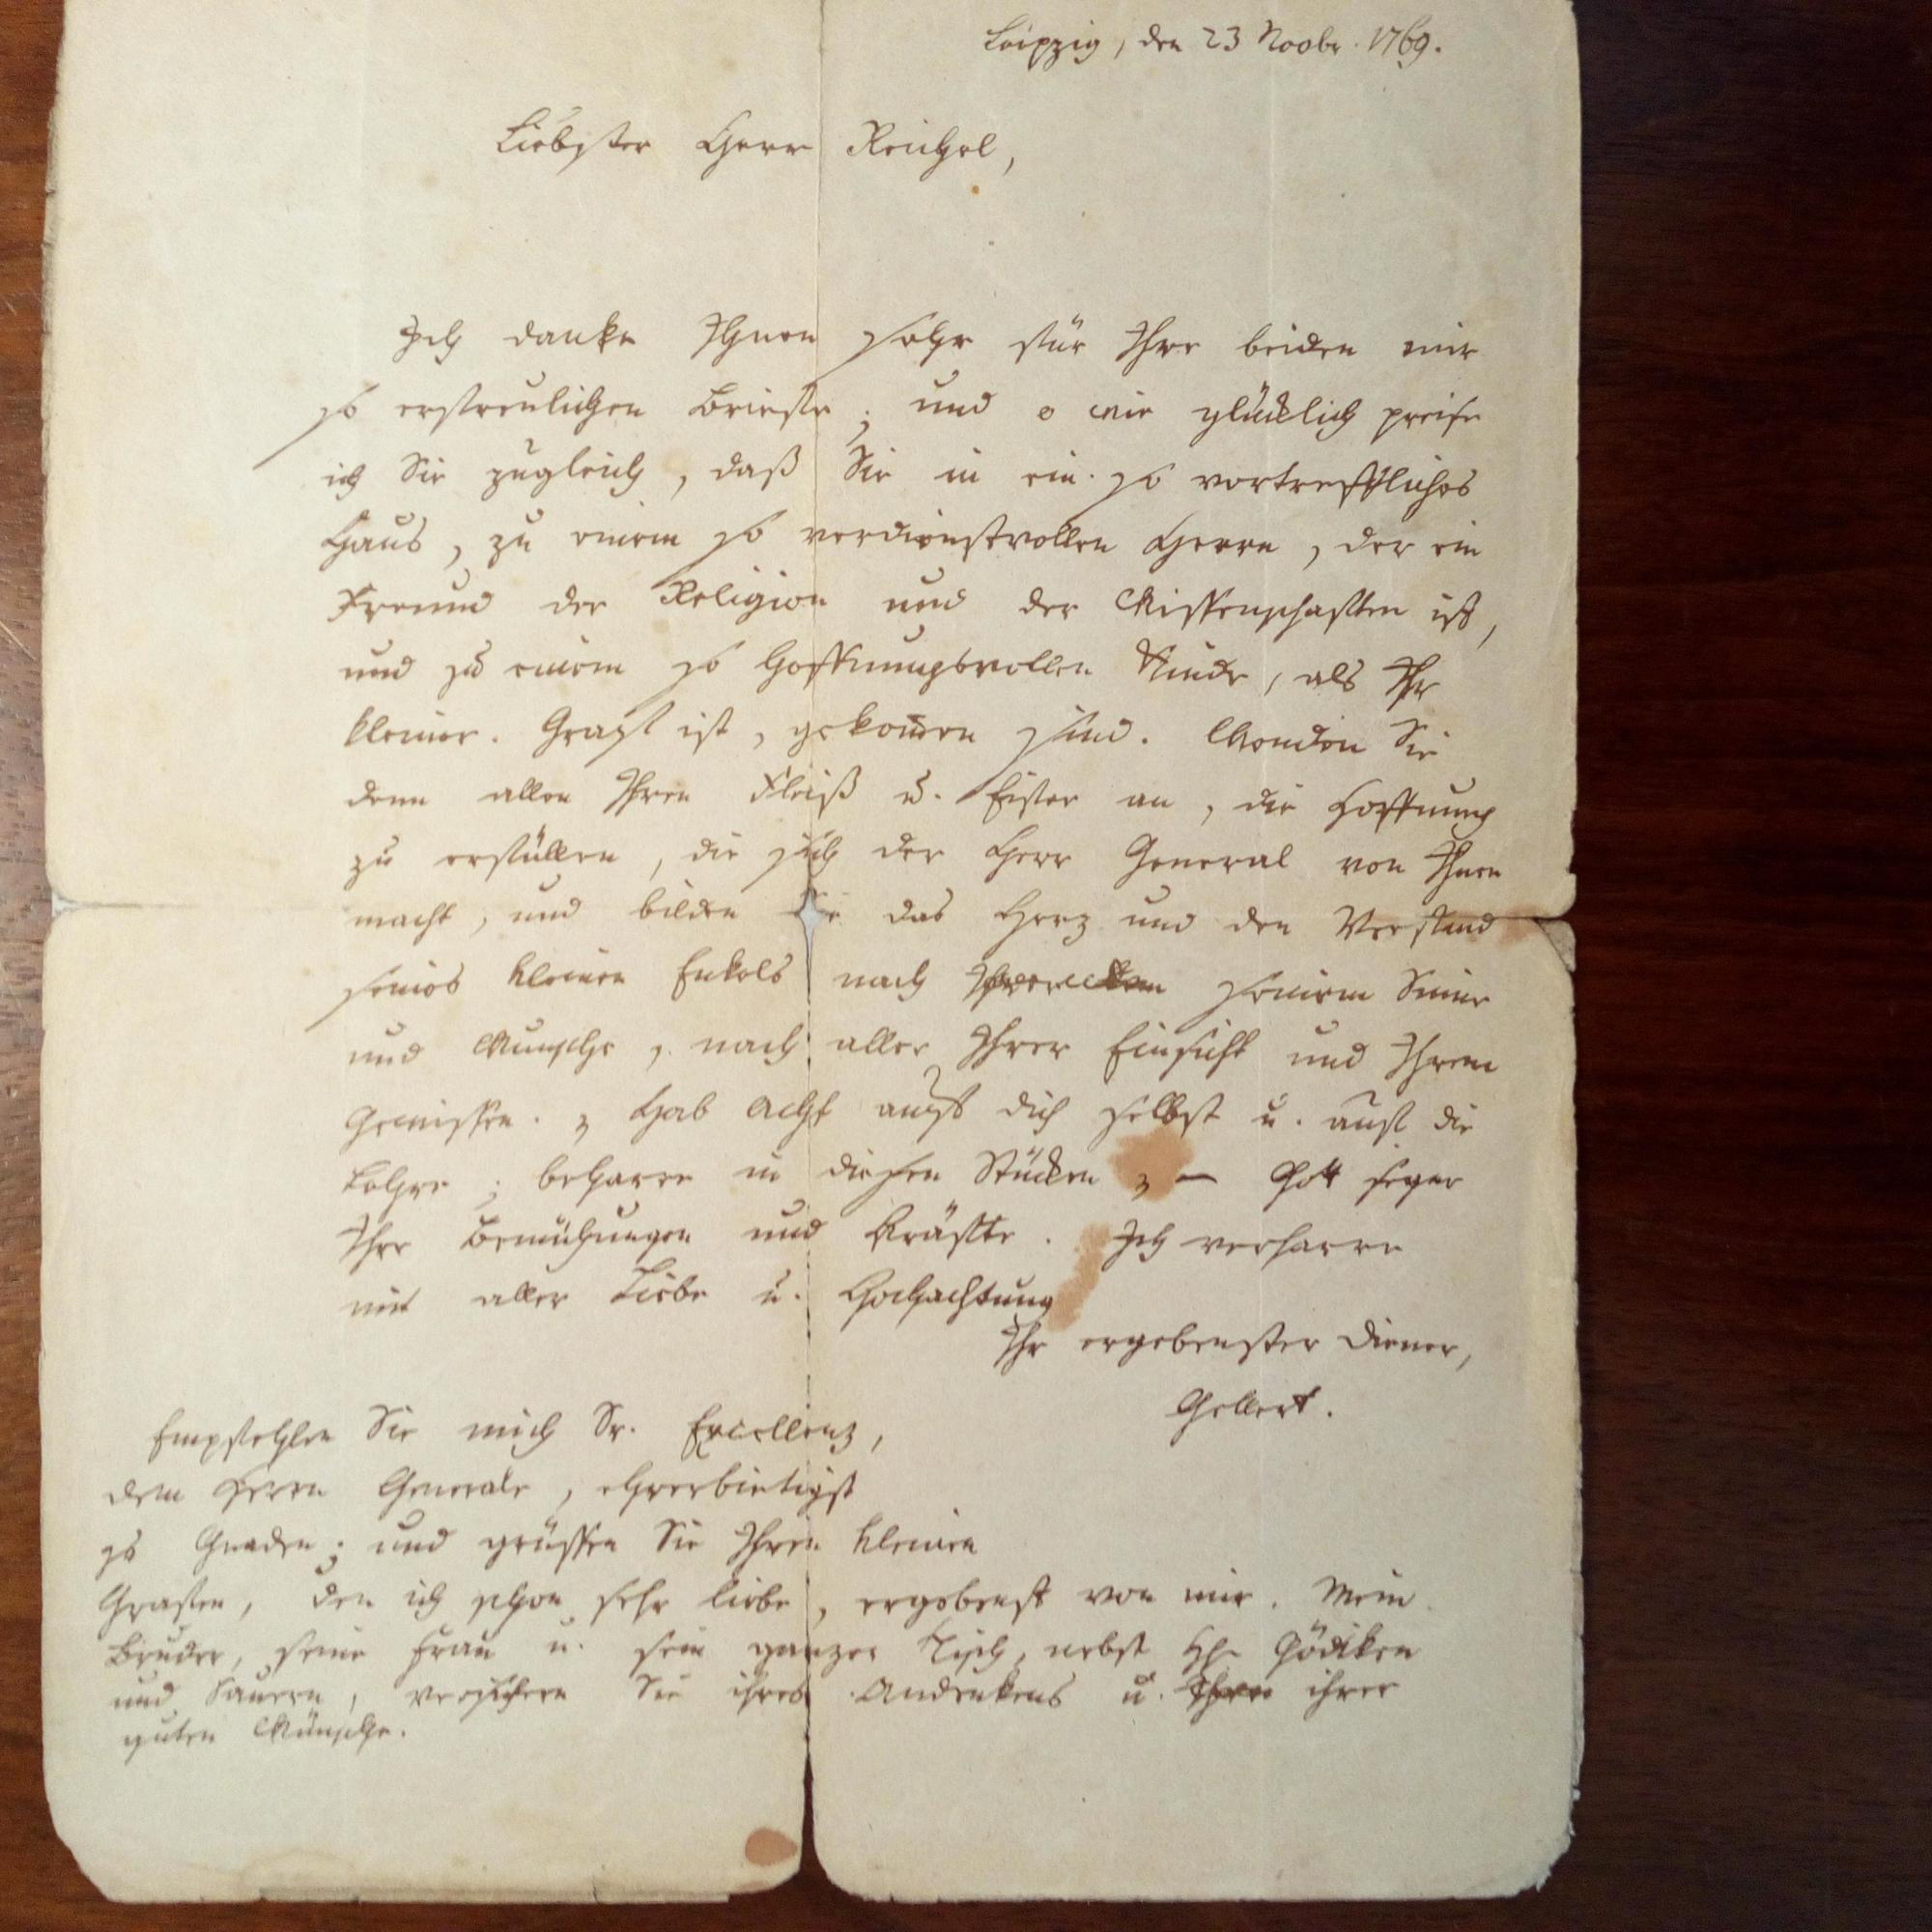 Leipzig, den 23 Novbr. 1769.
Liebster Herr Reichel,
Ich danke Ihnen sehr für Ihre beiden mir
so erfreulichen Briefe; und o wie glücklich preise
ich Sie zugleich, daß Sie in ein so vortreffliches
Haus, zu einem so verdienstvollen Herrn, der ein
Freund der Religion und der Wissenschaften ist,
und zu einem so hoffnungsvollen Kinde, als Ihr
kleiner Graf ist, gekom̄en sind. Wenden Sie
denn allen Ihren Fleiß u. Eifer an, die Hoffnung
zu erfüllen, die sich der Herr General von Ihnen
macht, und bilden Sie das Herz und den Verstand
seines kleinen Enkels nach seinem Sinne
und Wunsche, nach aller Ihrer Einsicht und Ihrem
Gewissen. Hab Acht auf dich selbst u. auf die
Lehre; beharre in diesen Stücken – Gott segne
Ihre Bemühungen und Kräfte. Ich verharre
mit aller Liebe u. Hochachtung
Ihr ergebenster Diener,
Gellert.
Empfehlen Sie mich Sr. Excellenz,
dem Herrn Generale, ehrerbietigst
zu Gnaden; und grüssen Sie Ihren kleinen
Grafen, den ich schon sehr liebe, ergebenst von mir. Mein
Bruder, seine Frau u. sein ganzer Tisch, nebst HE. Gödiken
und Sauern, versichern Sie ihres Andenkens u. ihrer
guten Wünsche.